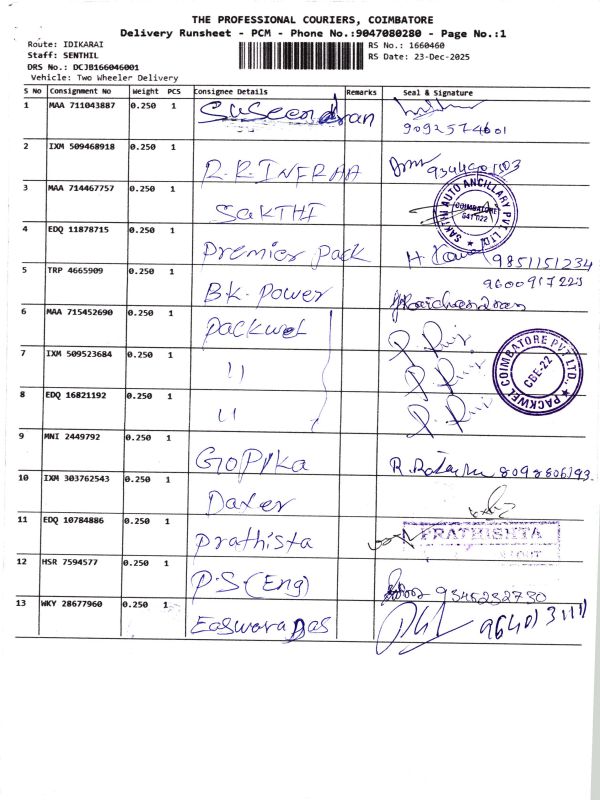 THE PROFESSIONAL COURIERS, COIMBATORE
Delivery Runsheet - PCM - Phone No.:9047080280 - Page No.:1
Route: IDIKARAI
RS No.: 1660460
Staff: SENTHIL
RS Date: 23-Dec-2025
DRS No.: DCJB166046001
Vehicle: Two Wheeler Delivery
S No Consignment No Weight PCS Consignee Details Remarks Seal & Signature
1 MAA 711043887 0.250 1 Suseendran
9092574601
2 IXM 509468918 0.250 1 R.R.INFRAA
3 MAA 714467757 0.250 1 SAKTHI
SAKTHI AUTO ANCILLARY PVT. LTD.
COIMBATORE
641 022
4 EDQ 11878715 0.250 1 Premier pack
9851151234
5 TRP 4665909 0.250 1 BK. Power
6 MAA 715452690 0.250 1 packwel
7 IXM 509523684 0.250 1 "
PACKWEL COIMBATORE PVT LTD.,
CBE-22
8 EDQ 16821192 0.250 1 "
9 MNI 2449792 0.250 1 GOPIKA
10 IXM 303762543 0.250 1 Daxer
11 EDQ 10784886 0.250 1 Prathista
PRATHISHTA
12 HSR 7594577 0.250 1 P.S (Eng)
13 WKY 28677960 0.250 1 Easwara Das